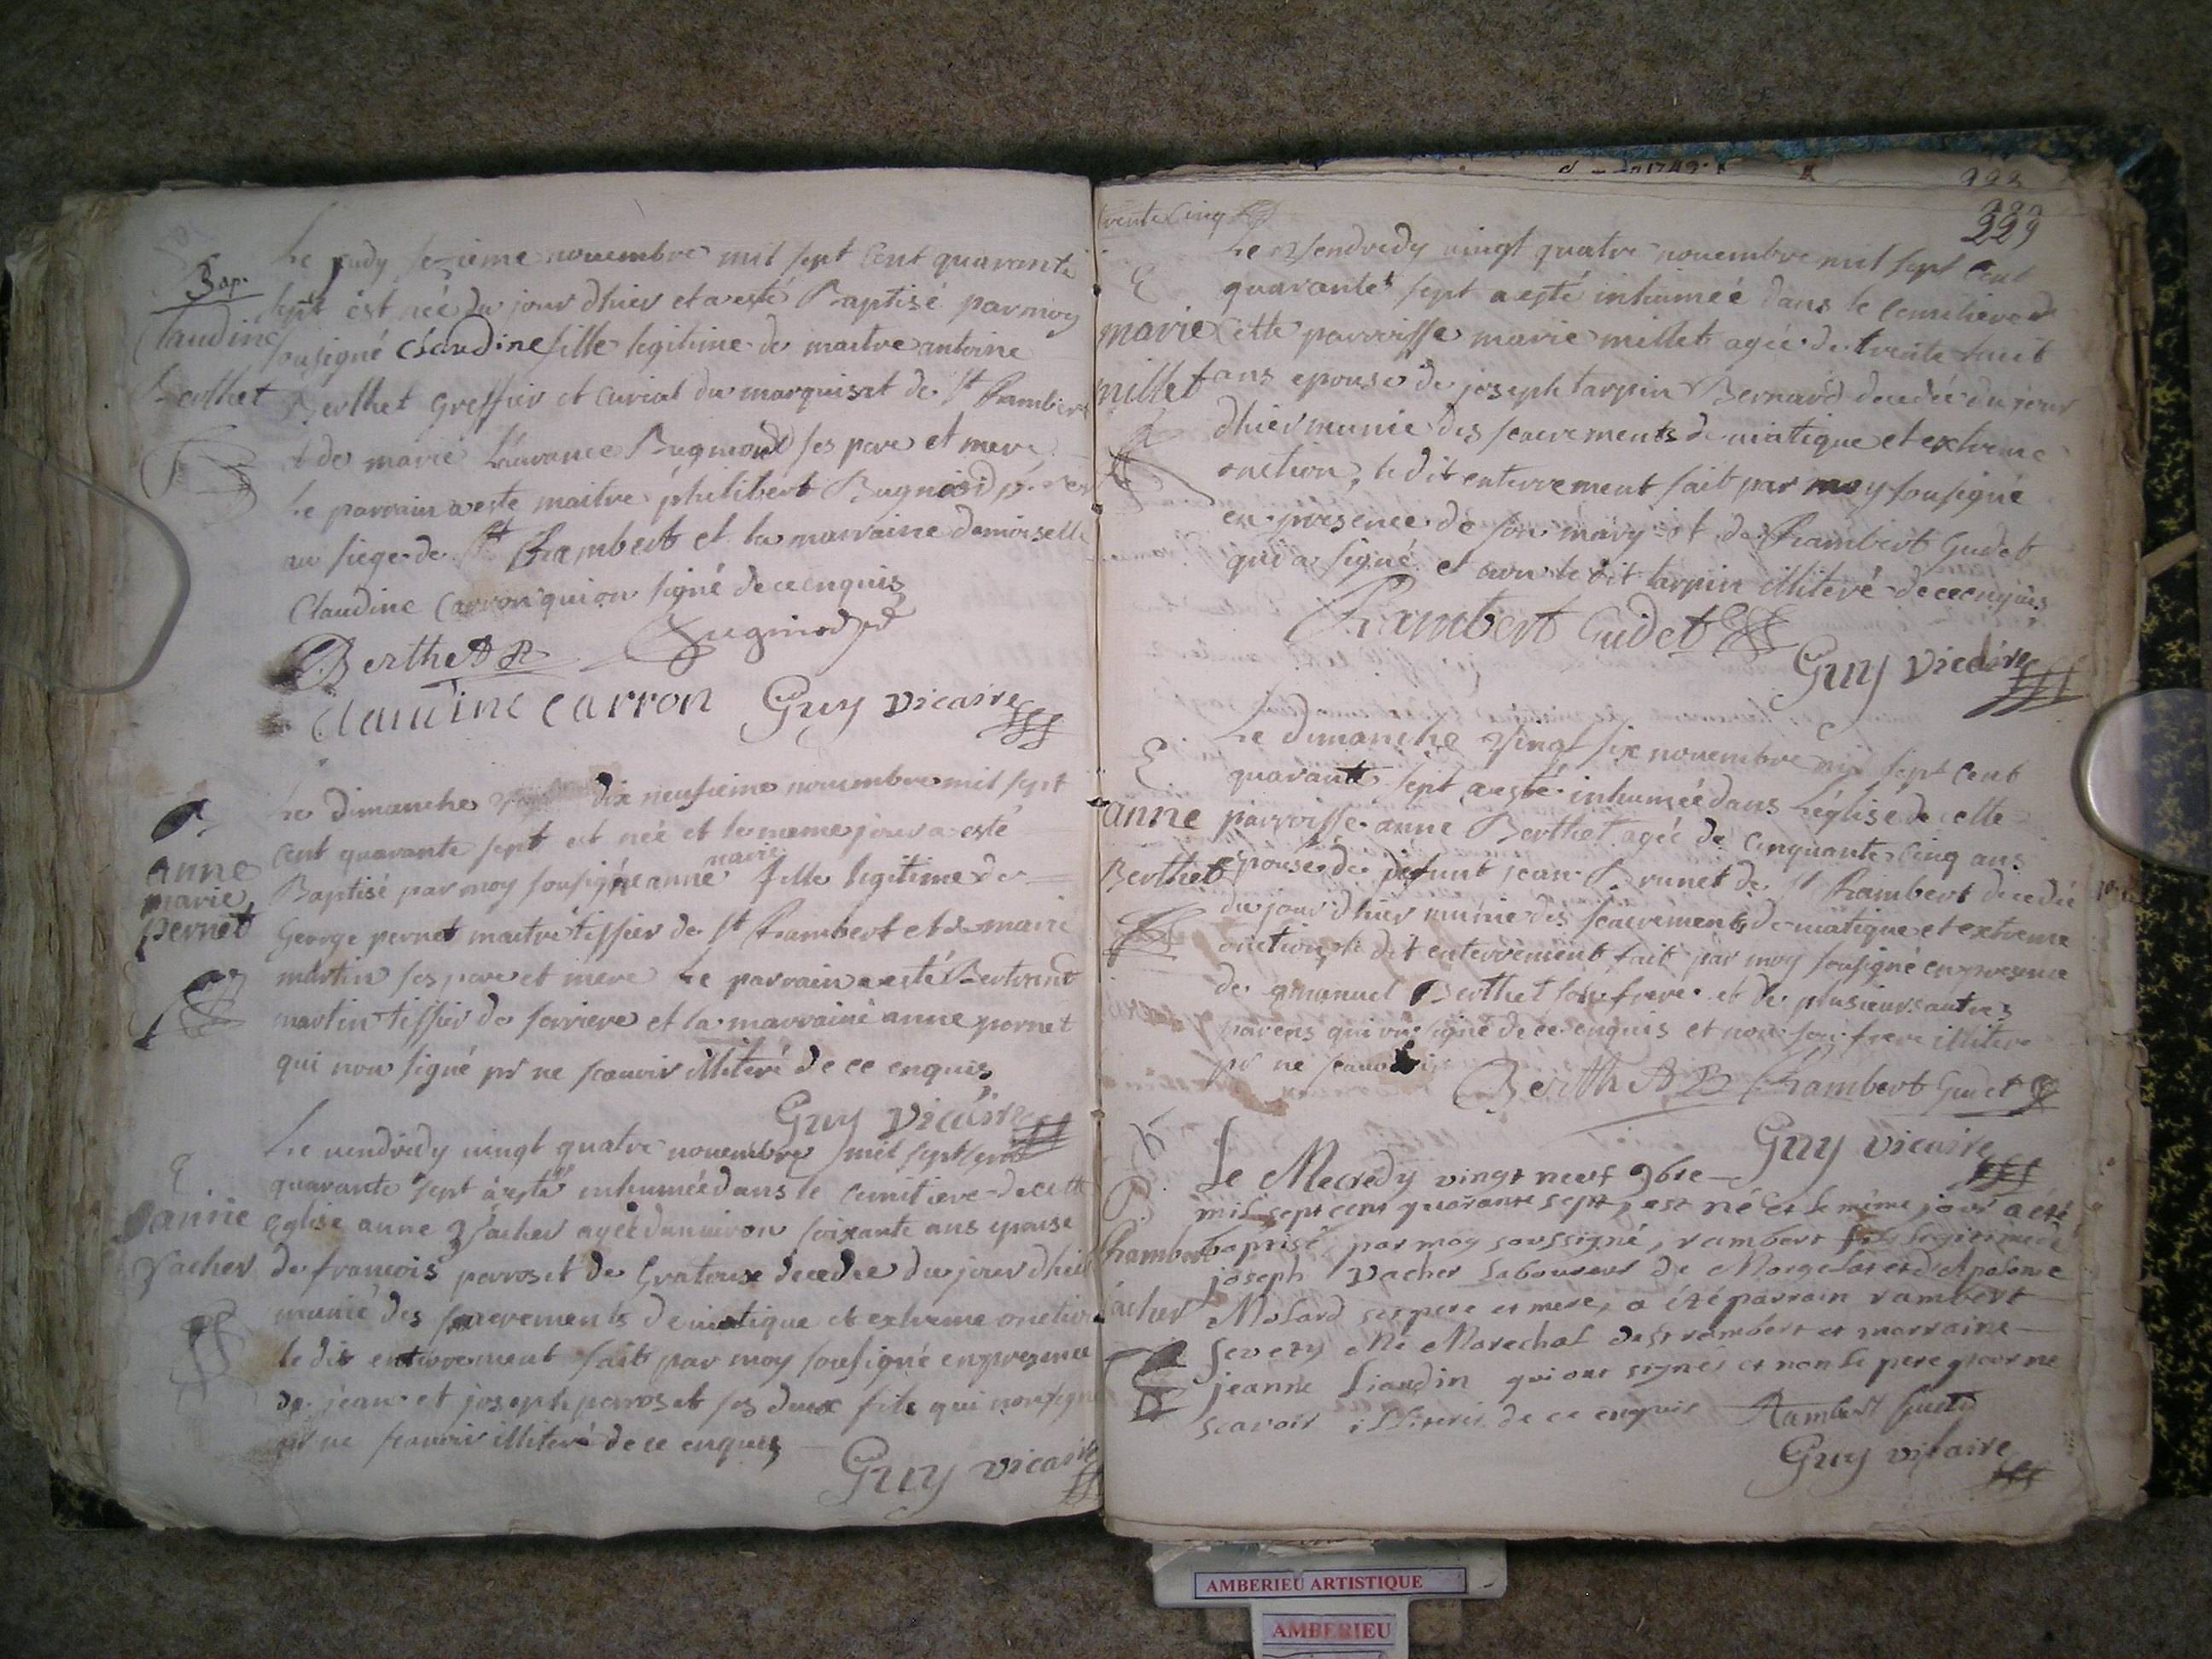 Bap.
Claudine
Berthet
Le jeudy sezieme novembre mil sept Cent quarante
sept est née du jour dhier et a esté Baptisé par moy
sousigné Claudine fille legitime de maitre antoine
Berthet Greffier et Curial du marquisat de St Rambert
et de marie Laurance Bugniod ses pere et mere
Le parrain a este maitre philibert Bugniod
au siege de St Rambert et la marraine damoiselle
Claudine Carron qui on signé de ce enquis
Berthet
Claudine carron Guy vicaire
anne
marie
pernet
Le dimanche dix neufieme novembre mil sept
cent quarante sept est née et le meme jour a esté
Baptisé par moy sousigné anne marie fille legitime de
George pernet maitre tissier de St Rambert et de marie
martin ses pere et mere Le parrain a esté Bertrand
martin tissier de serriere et la marraine anne pernet
qui non signé pr ne scavoir illiteré de ce enquis
Guy vicaire
E
anne
vacher
Le vendredy vingt quatre novembre mil sept cent
quarante sept a esté inhumée dans le cemitiere de cette
Eglise anne vacher agée denviron soixante ans epouse
de francois perroset de Gratoux decedée du jour dhier
munie des sacrements de viatique et extreme onction
le dit enterrement fait par moy sousigné en presence
de jean et joseph perroset ses deux fils qui non signé
pr ne scavoir illiteré de ce enquis
Guy vicaire
trente cinq
229
E
marie
millet
Le vendredy vingt quatre novembre mil sept Cent
quarante sept a esté inhumée dans le Cemitiere de
cette parroisse marie millet agée de trente huit
ans epouse de joseph tarpin Bernard decedée du jour
dhier munie des sacrements de viatique et extreme
onction, le dit enterrement fait par moy sousigné
en presence de son mary et de Rambert Gudet
qui a signé et non le dit tarpin illiteré de ce enquis
Rambert Gudet
Guy vicaire
E
anne
Berthet
Le dimanche vingt six novembre mil sept cent
quarante sept a esté inhumée dans L'église de cette
parroisse anne Berthet agée de Cinquante Cinq ans
epouse de defunt jean Brunet de St Rambert decedée
du jour dhier munie des sacrements de viatique et extreme
onction, le dit enterrement fait par moy sousigné en presence
de emanuel Berthet son frere et de plusieurs autres
parens qui on signé de ce enquis et non son frere illiteré
pr ne scavoir
Berthet Rambert Gudet
Guy vicaire
B.
Rambert
vacher
Le Mecredy vingt neuf 9bre
mil sept cent quarante sept, est né et le même jour a été
baptisé par moy soussigné, rambert fils legitime de
joseph vacher Laboureur de Morgelas et d'Apolonie
Molard ses pere et mere, a été parrain rambert
Me Marechal de St rambert et marraine
jeanne Liaudin qui ont signés et non le pere pour ne
scavoir illiteré de ce enquis Rambert
Guy vicaire
AMBERIEU ARTISTIQUE
AMBERIEU